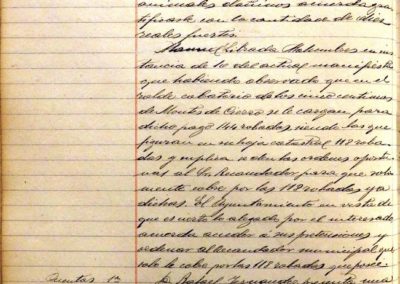 animales dañinos acuerda gra-
tificarle con la cantidad de diez
reales fuertes.
Manuel Librada Malumbres en ins-
tancia de 10 del actual manifiesta
que habiendo observado que en el
cobratorio de los cinco céntimos
de Montes de Cierzo se le cargan para
dicho pago 144 robadas siendo las que
figuran en su hoja catastral 118 roba-
das y suplica se den las ordenes oporti-
vas al Recaudador para que sola-
mente cobre por las 118 robadas ya
dichas. El Ayuntamiento en vista de
que es cierto lo alegado por el interesado
acuerda acceder á sus pretensiones y
ordenar al Recaudador municipal que
solo le cobre por las 118 robadas que posee
Cuentas D. Rafael Fernandez presenta una